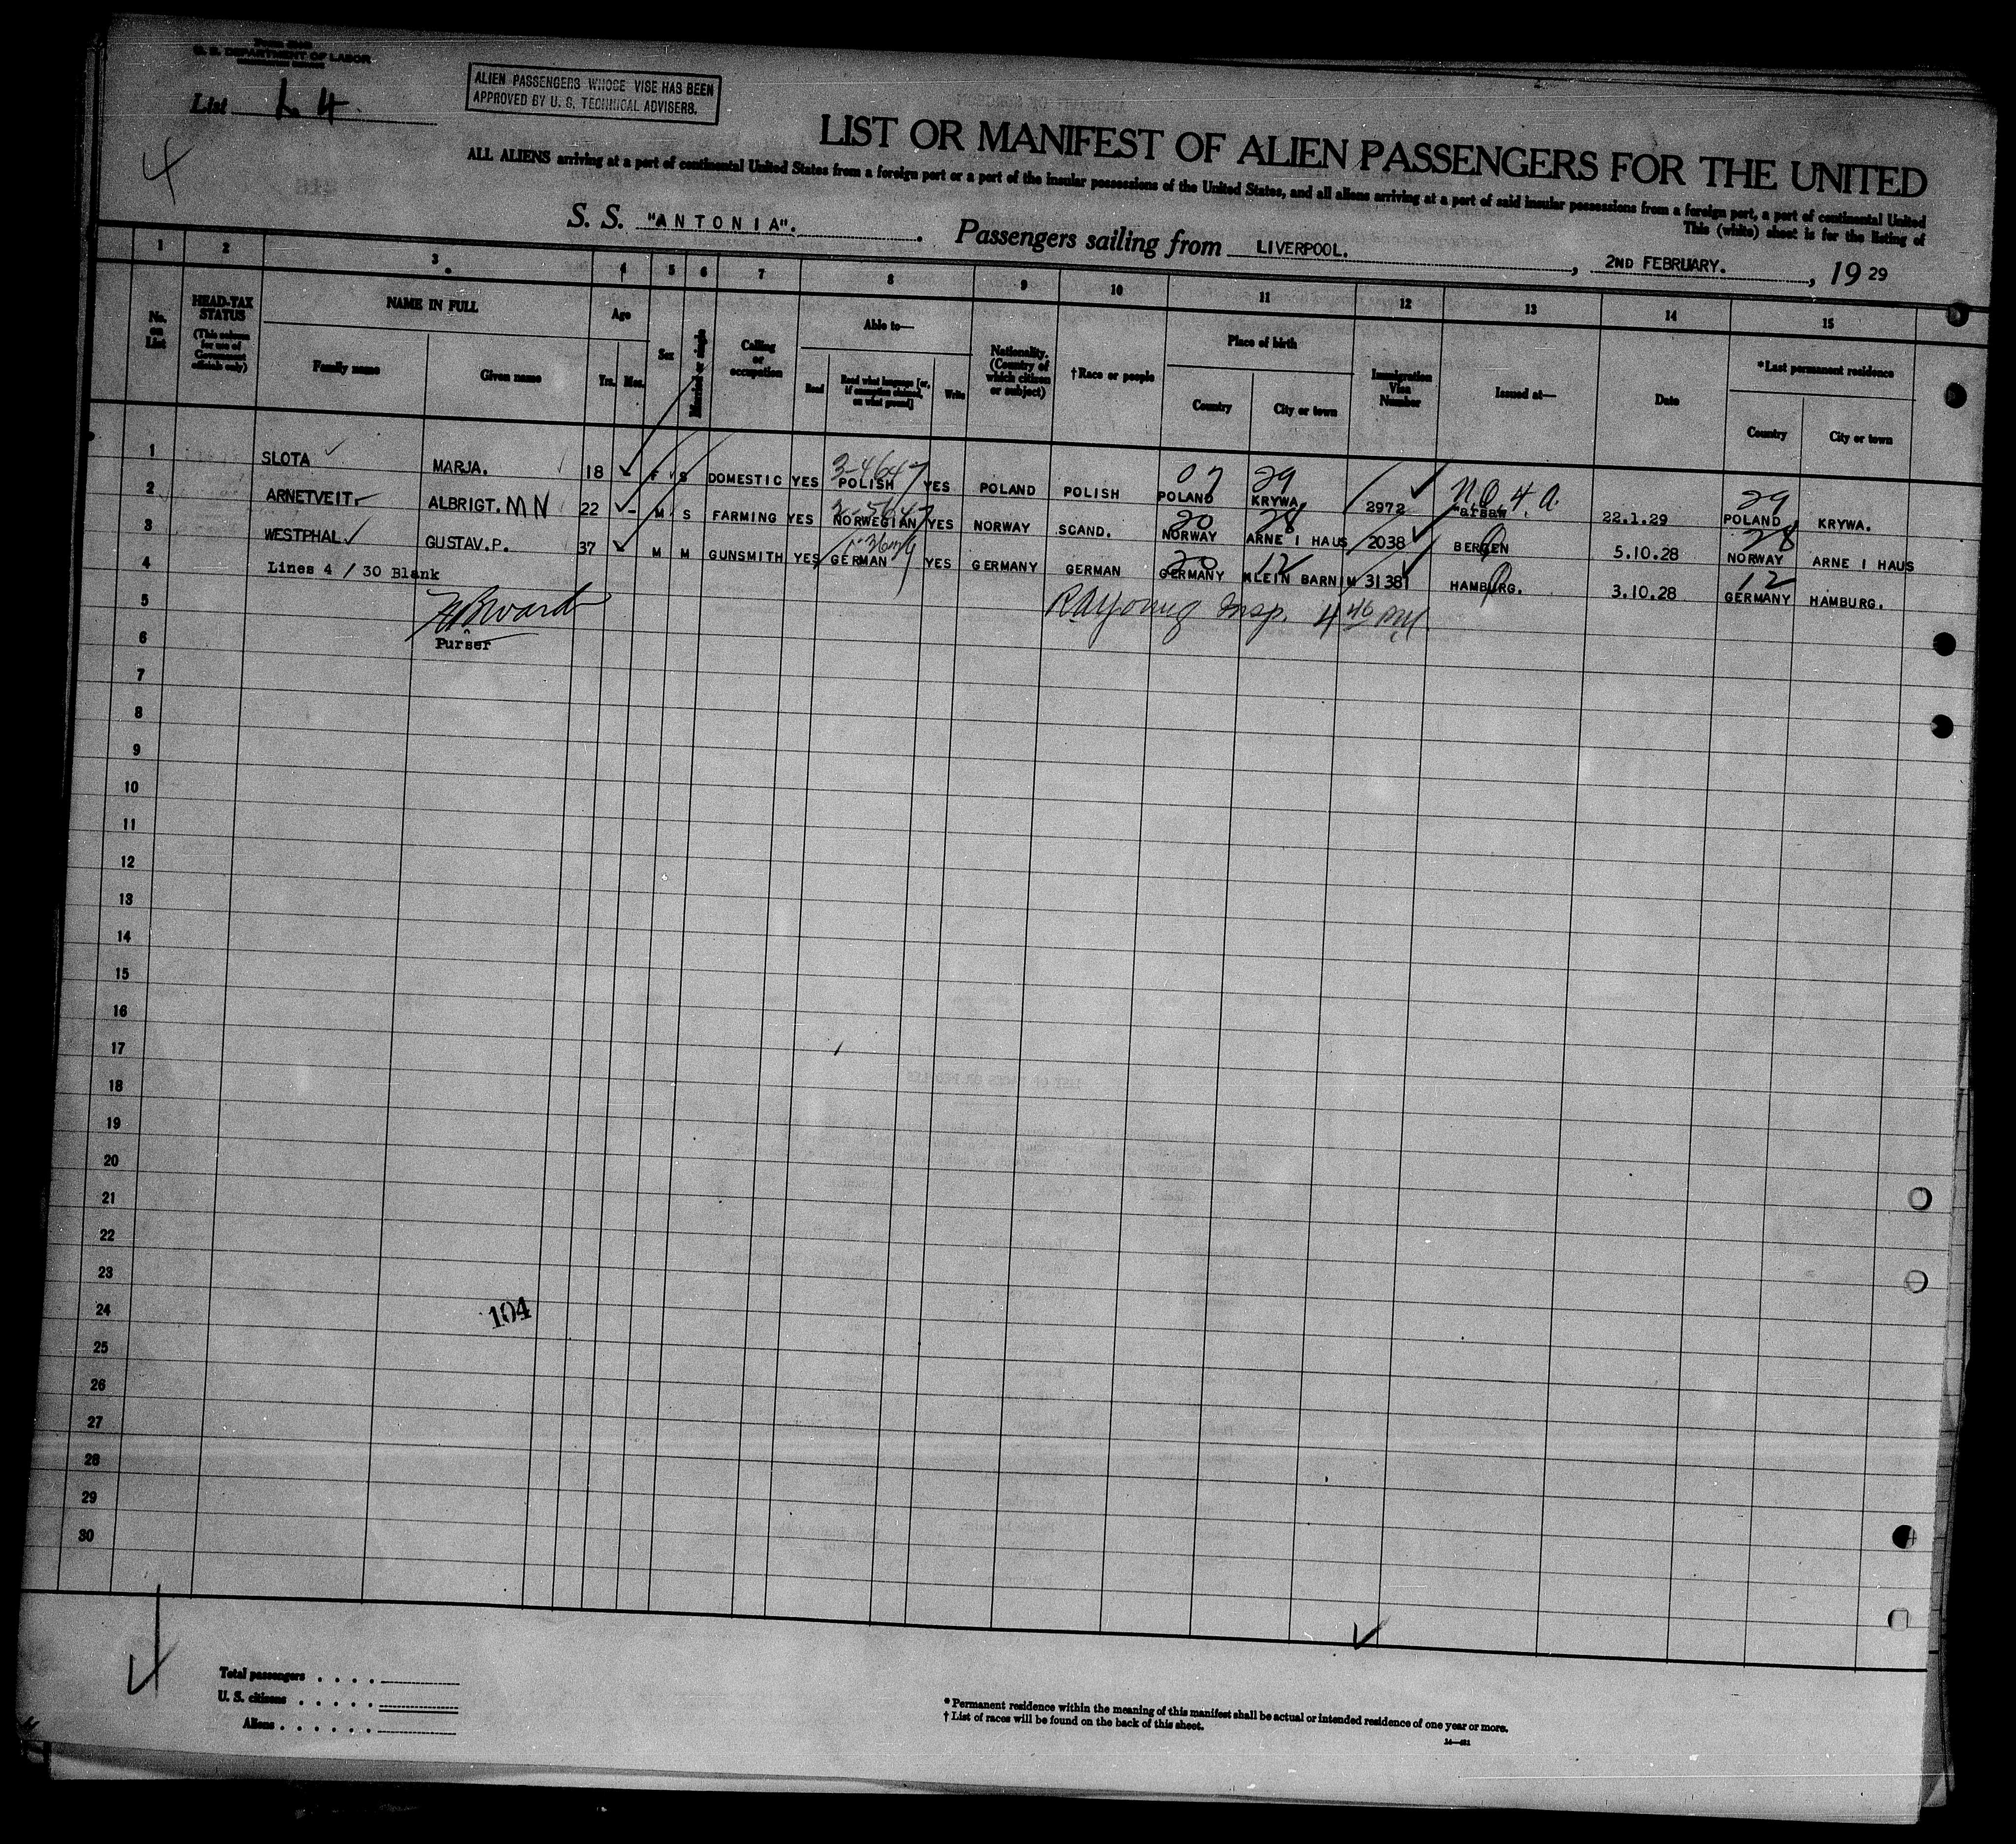 U. S. DEPARTMENT OF LABOR
List L 4
ALIEN PASSENGERS WHOSE VISE HAS BEEN
APPROVED BY U. S. TECHNICAL ADVISERS.
4
LIST OR MANIFEST OF ALIEN PASSENGERS FOR THE UNITED
ALL ALIENS arriving at a port of continental United States from a foreign port or a port of the insular possessions of the United States, and all aliens arriving at a port of said insular possessions from a foreign port, a port of continental United
This (white) sheet is for the listing of
S. S. "ANTONIA". Passengers sailing from LIVERPOOL. , 2ND FEBRUARY. , 19 29
1 2 3 4 5 6 7 8 9 10 11 12 13 14 15
No. on List
HEAD-TAX STATUS (This column for use of Government officials only)
NAME IN FULL
Family name Given name
Age
Yrs. Mos.
Sex
Married or single
Calling or occupation
Able to—
Read Read what language [or, if exemption claimed, on what ground] Write
Nationality. (Country of which citizen or subject)
†Race or people
Place of birth
Country City or town
Immigration Visa Number
Issued at—
Date
*Last permanent residence
Country City or town
1 SLOTA MARJA. 18 F S DOMESTIC YES POLISH YES POLAND POLISH POLAND KRYWA 2972 Warsaw 22.1.29 POLAND KRYWA.
2 ARNETVEIT. ALBRIGT. M N 22 - M S FARMING YES NORWEGIAN YES NORWAY SCAND. NORWAY ARNE I HAUS 2038 BERGEN 5.10.28 NORWAY ARNE I HAUS
3 WESTPHAL GUSTAV.P. 37 M M GUNSMITH YES GERMAN YES GERMANY GERMAN GERMANY KLEIN BARNIM 31381 HAMBURG. 3.10.28 GERMANY HAMBURG.
4 Lines 4 / 30 Blank
5
6 Purser
7
8
9
10
11
12
13
14
15
16
17
18
19
20
21
22
23
24 104
25
26
27
28
29
30
Total passengers
U. S. citizens
Aliens
* Permanent residence within the meaning of this manifest shall be actual or intended residence of one year or more.
† List of races will be found on the back of this sheet.